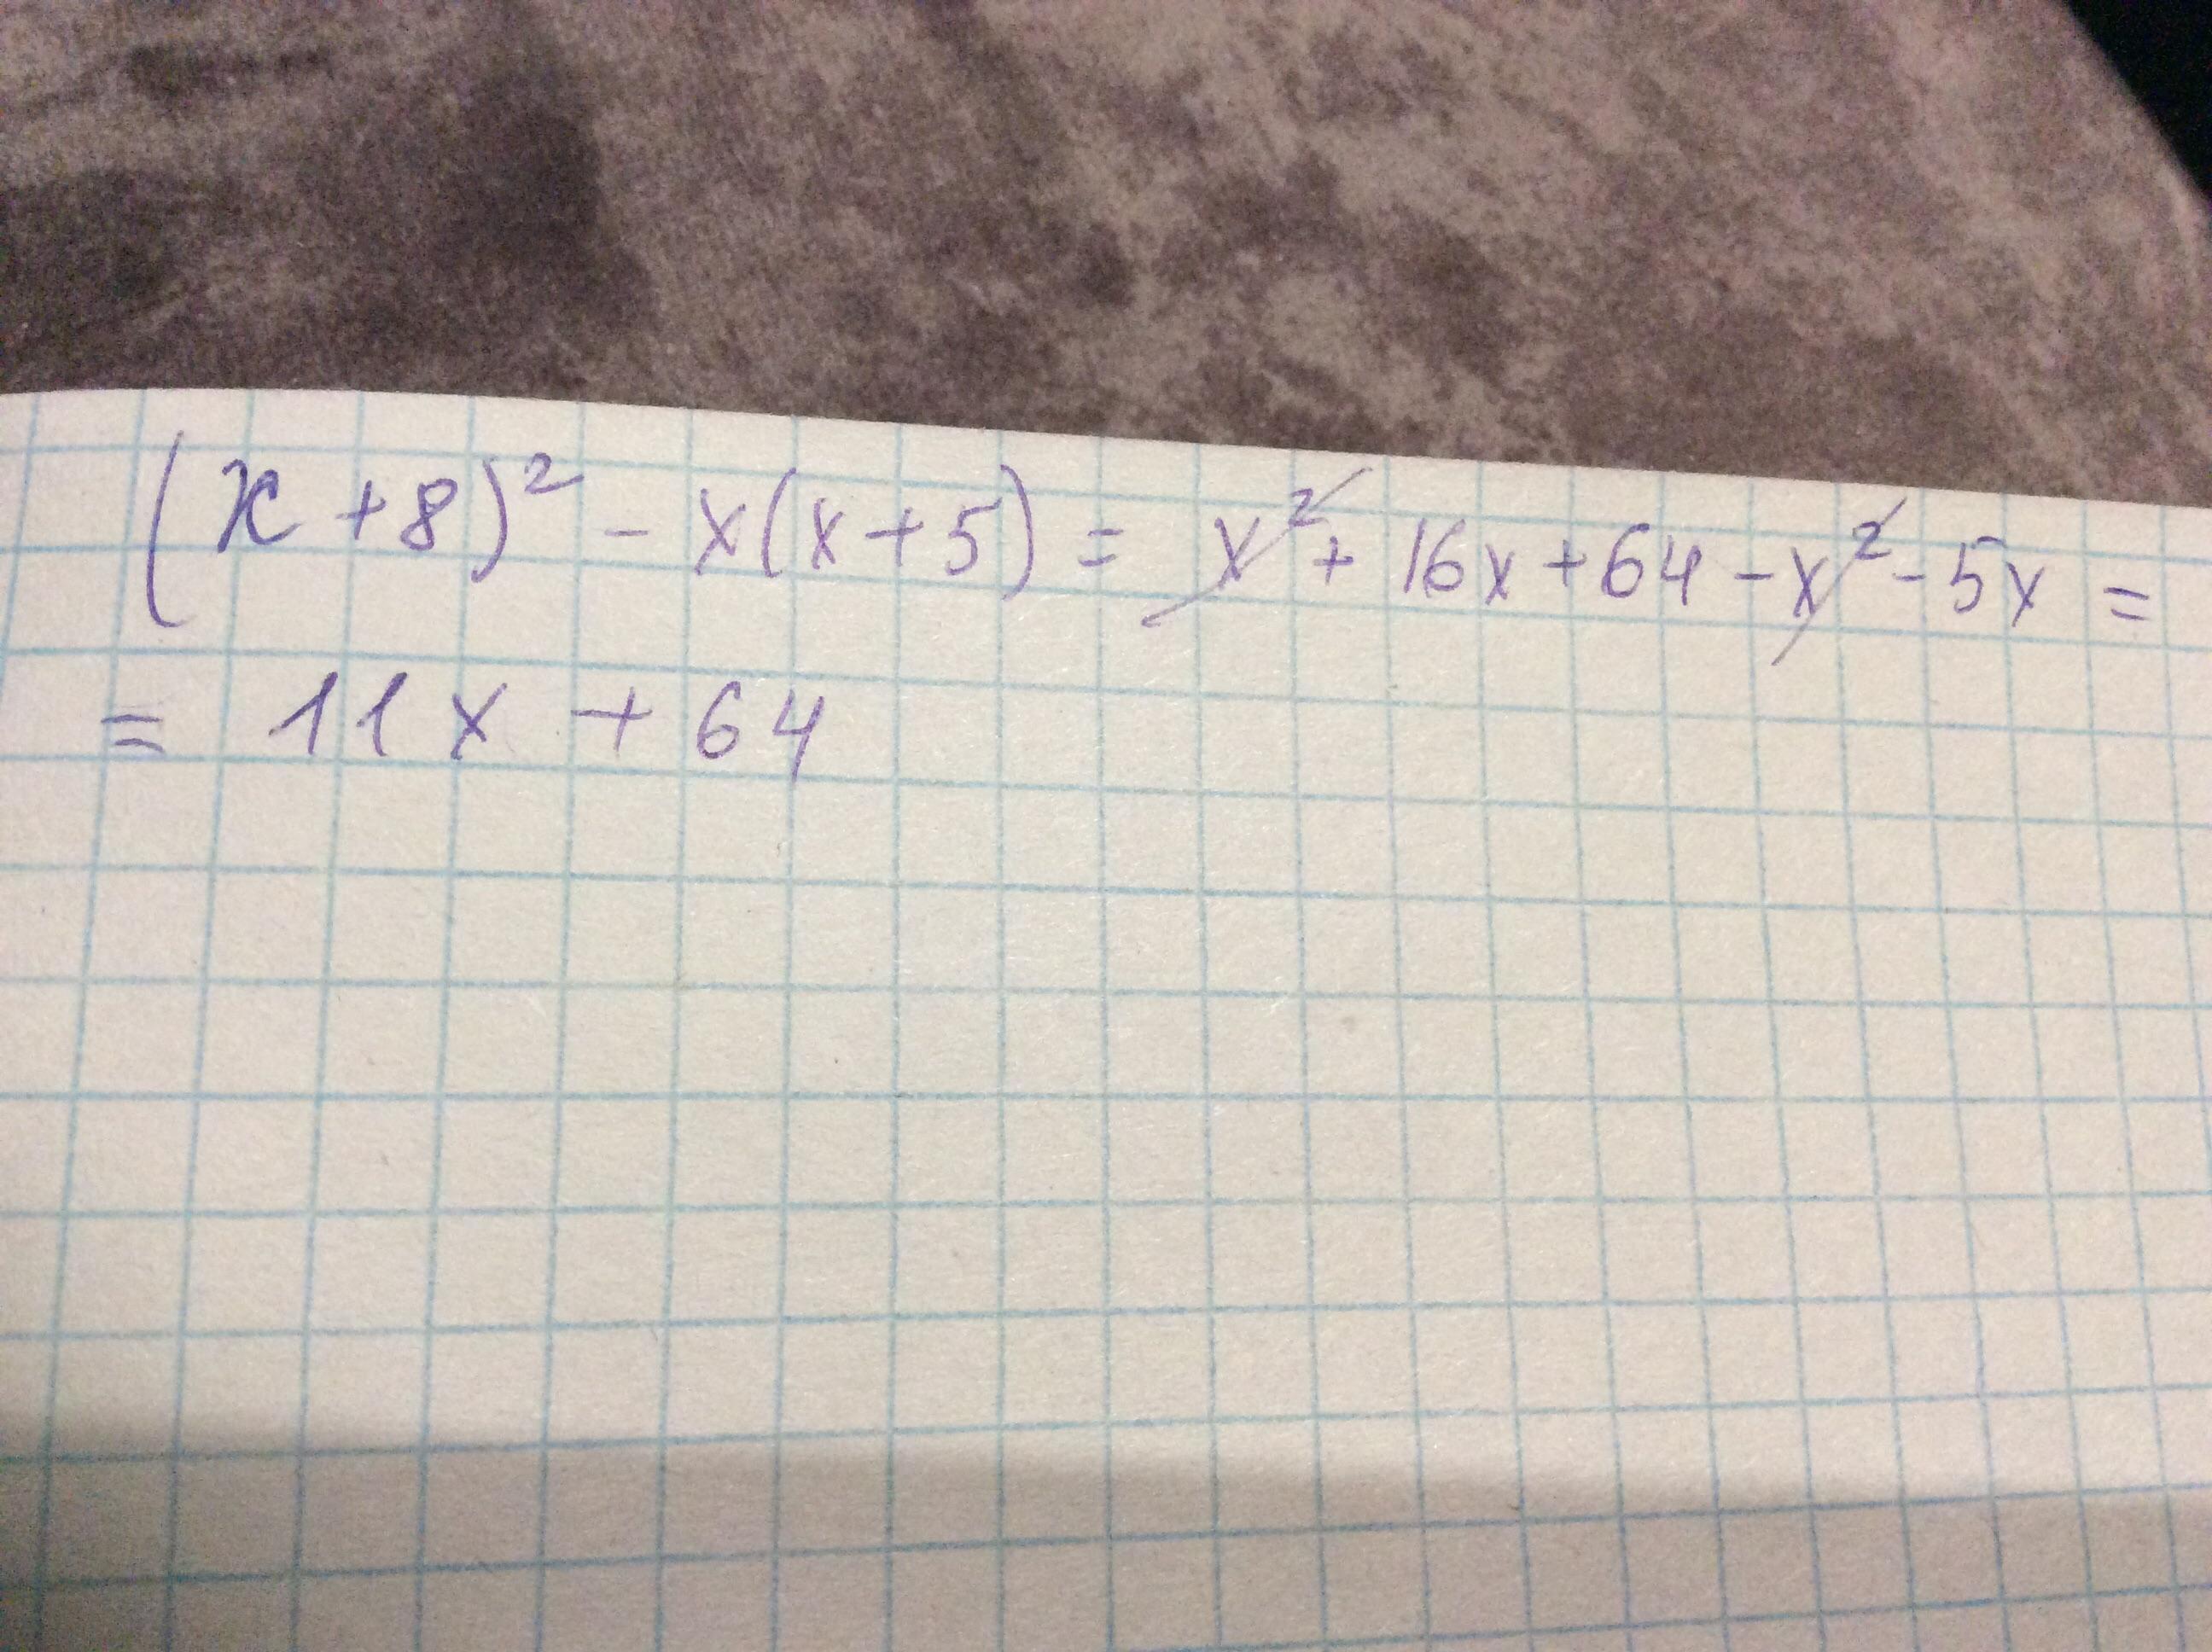 (x+8)² - x(x+5) = x² + 16x + 64 - x² - 5x =
= 11x + 64